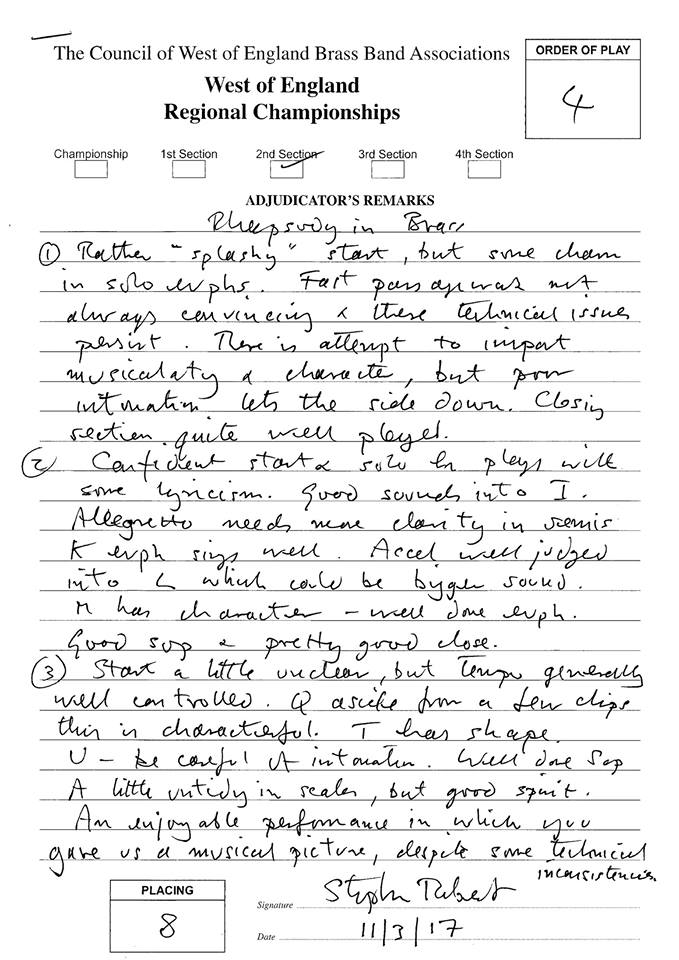 The Council of West of England Brass Band Associations
West of England
Regional Championships
ORDER OF PLAY
4
Championship 1st Section 2nd Section 3rd Section 4th Section
ADJUDICATOR'S REMARKS
Rhapsody in Brass
① Rather "splashy" start, but some charm
in solo euphs. Fast passagework not
always convincing & these technical issues
persist. There is attempt to impart
musicalaty & character, but poor
intonation lets the side down. Closing
section quite well played.
② Confident start & solo hn plays with
some lyricism. Good sounds into I.
Allegretto needs more clarity in semis
K euph sings well. Accel well judged
into L which could be bigger sound.
M has character - well done euph.
Good sop & pretty good close.
③ Start a little unclear, but tempo generally
well controlled. Q aside from a few clips
this is characterful. T has shape.
U - be careful of intonation. Well done Sop
A little untidy in scales, but good spirit.
An enjoyable performance in which you
gave us a musical picture, despite some technical
inconsistencies.
PLACING
8
Signature
Date 11/3/17